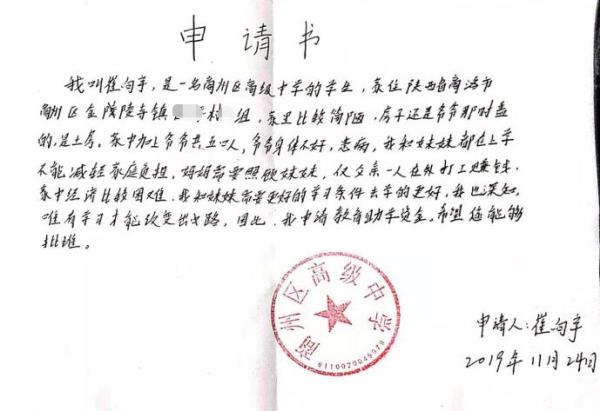 申请书
我叫崔向宇，是一名商州区高级中学的学生，家住陕西省商洛市
商州区金陵寺镇 村 组，家里比较简陋，房子还是爷爷那时盖
的，是土房。家中加上爷爷共五口人，爷爷身体不好，患病，我和妹妹都在上学
不能减轻家庭负担，妈妈需要照顾妹妹，仅父亲一人在外打工赚钱，
家中经济比较困难，我和妹妹需要更好的学习条件去学的更好，我也深知，
唯有学习才能改变出路，因此，我申请教育助学资金。希望您能够
批准。
商州区高级中学
申请人：崔向宇
2019年11月24日